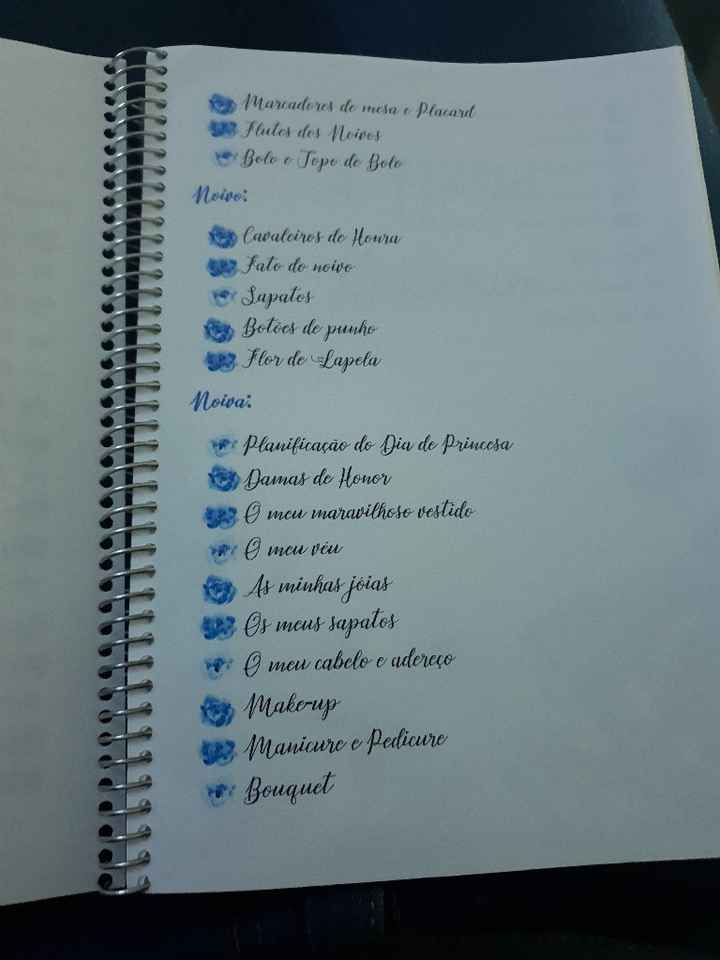 Marcadores de mesa e Placard
Flutes dos Noivos
Bolo e Topo de Bolo
Noivo:
Cavaleiros de Honra
Fato do noivo
Sapatos
Botões de punho
Flor de Lapela
Noiva:
Planificação do Dia de Princesa
Damas de Honor
O meu maravilhoso vestido
O meu véu
As minhas jóias
Os meus sapatos
O meu cabelo e adereço
Make-up
Manicure e Pedicure
Bouquet